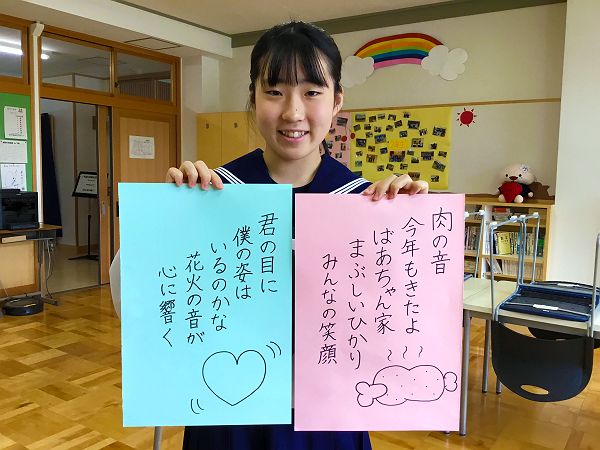 肉の音
今年もきたよ
ばあちゃん家
まぶしいひかり
みんなの笑顔
君の目に
僕の姿は
いるのかな
花火の音が
心に響く